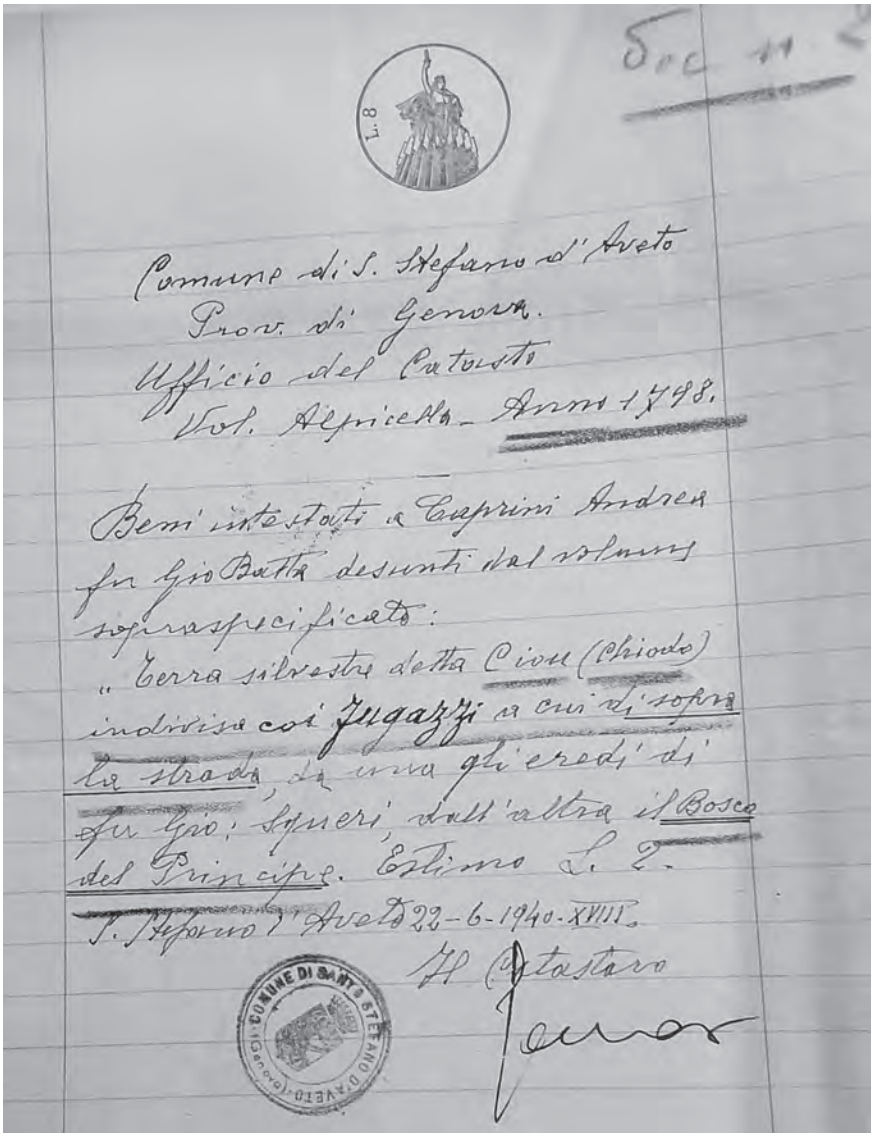 Doc n. 2
L. 8
Comune di S. Stefano d'Aveto
Prov. di Genova.
Ufficio del Catasto
Vol. Alpicella - Anno 1798.
Beni intestati a Caprini Andrea
fu Gio Batta desunti dal volume
sopraspecificato:
„ Terra silvestre detta Ciou (Chiodo)
indivisa coi Fugazzi a cui di sopra
la strada, da una gli eredi di
fu Gio: Squeri, dall'altra il Bosco
del Principe. Estimo L. 2.
S. Stefano d'Aveto 22-6-1940-XVIII.
Il Catastaro
COMUNE DI SANTO STEFANO D'AVETO (GENOVA)